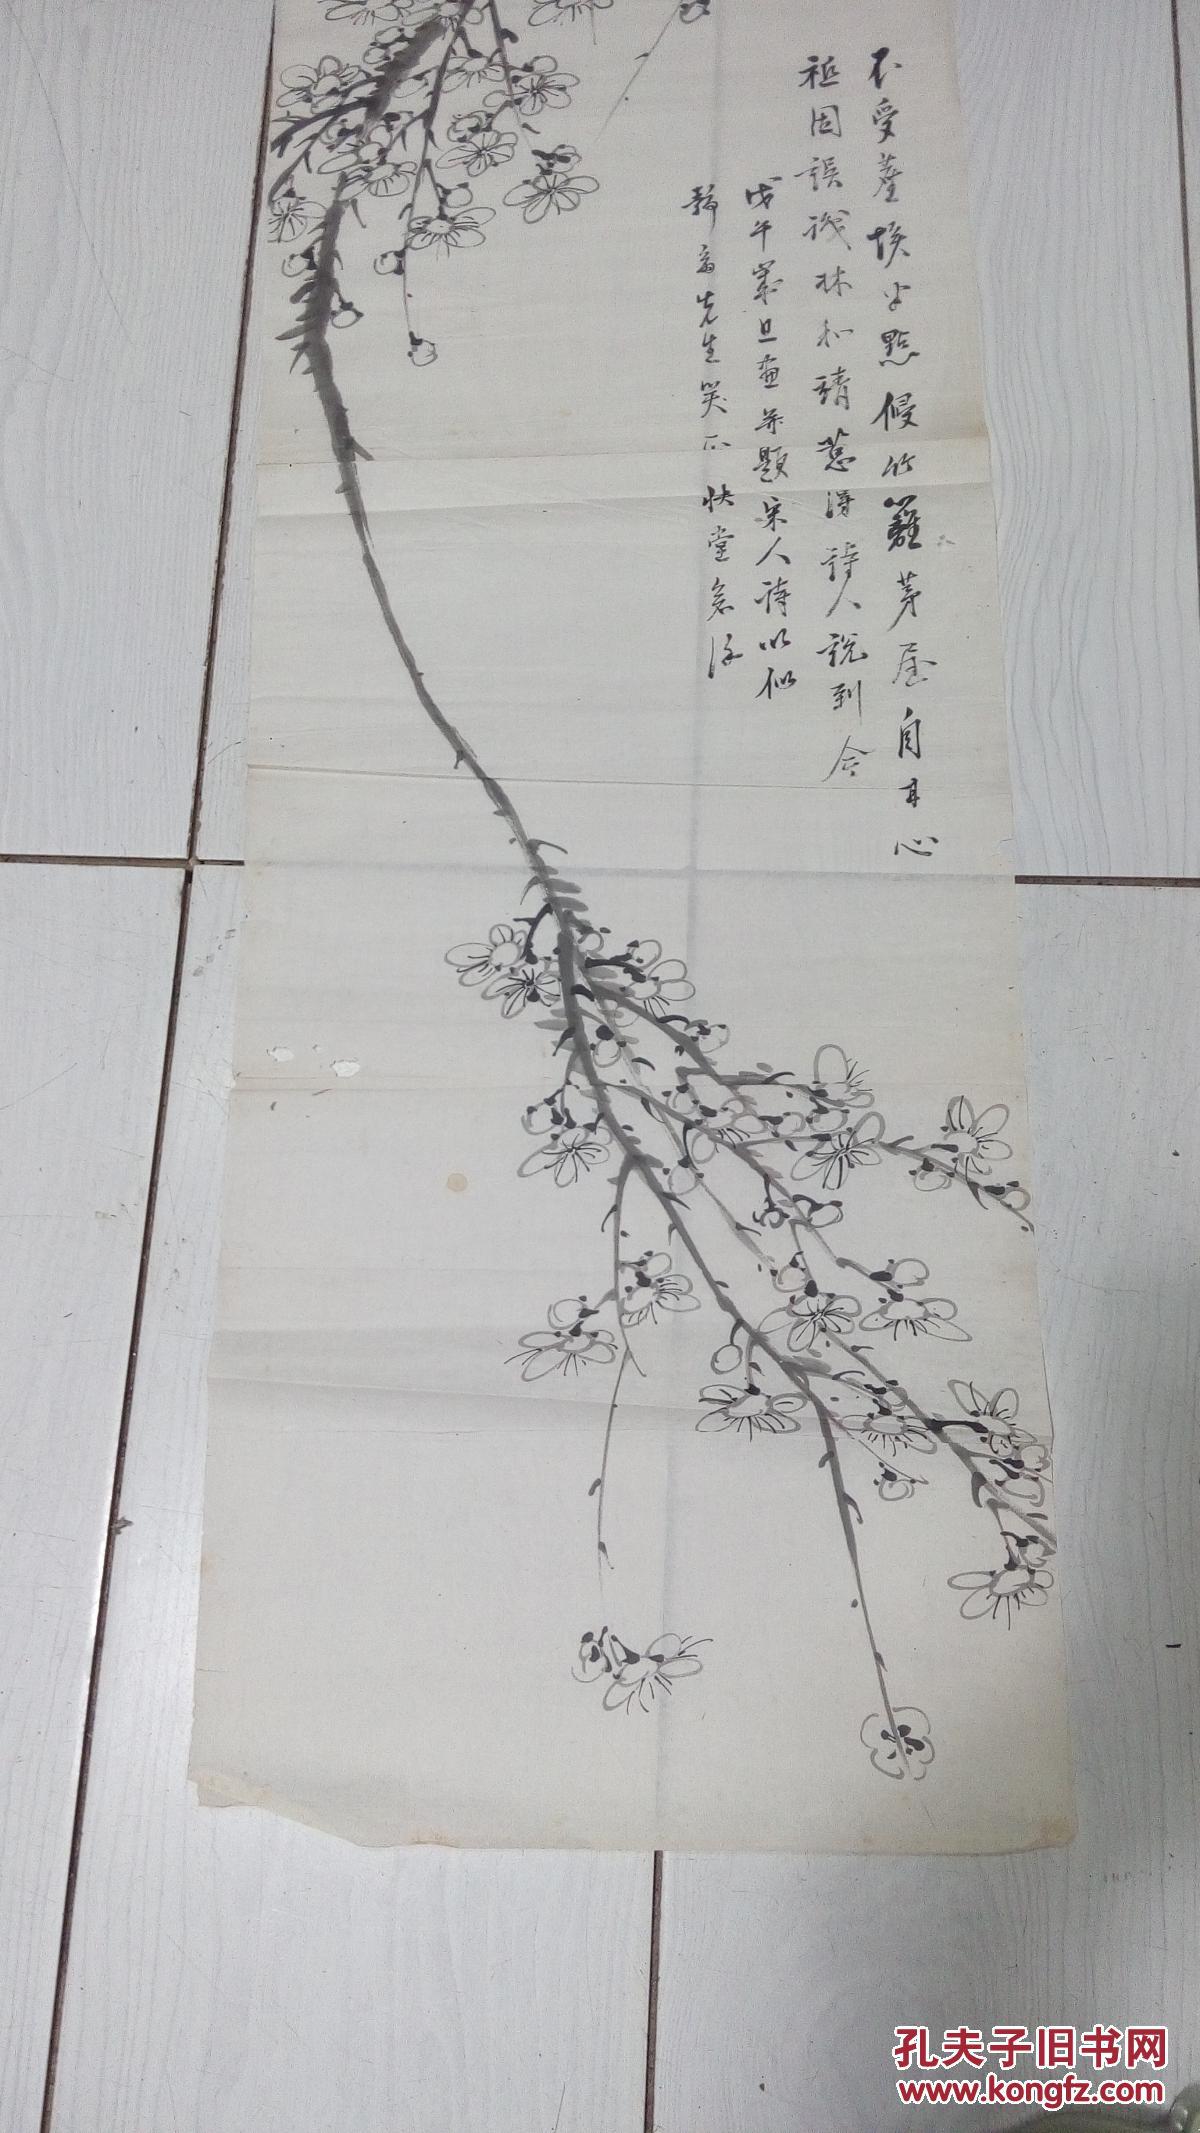 不受塵埃半點侵竹籬茅屋自甘心
祗因誤識林和靖惹得詩人說到今
戊午歲旦畫并題宋人詩以似
先生笑正 快堂
孔夫子旧书网
www.kongfz.com